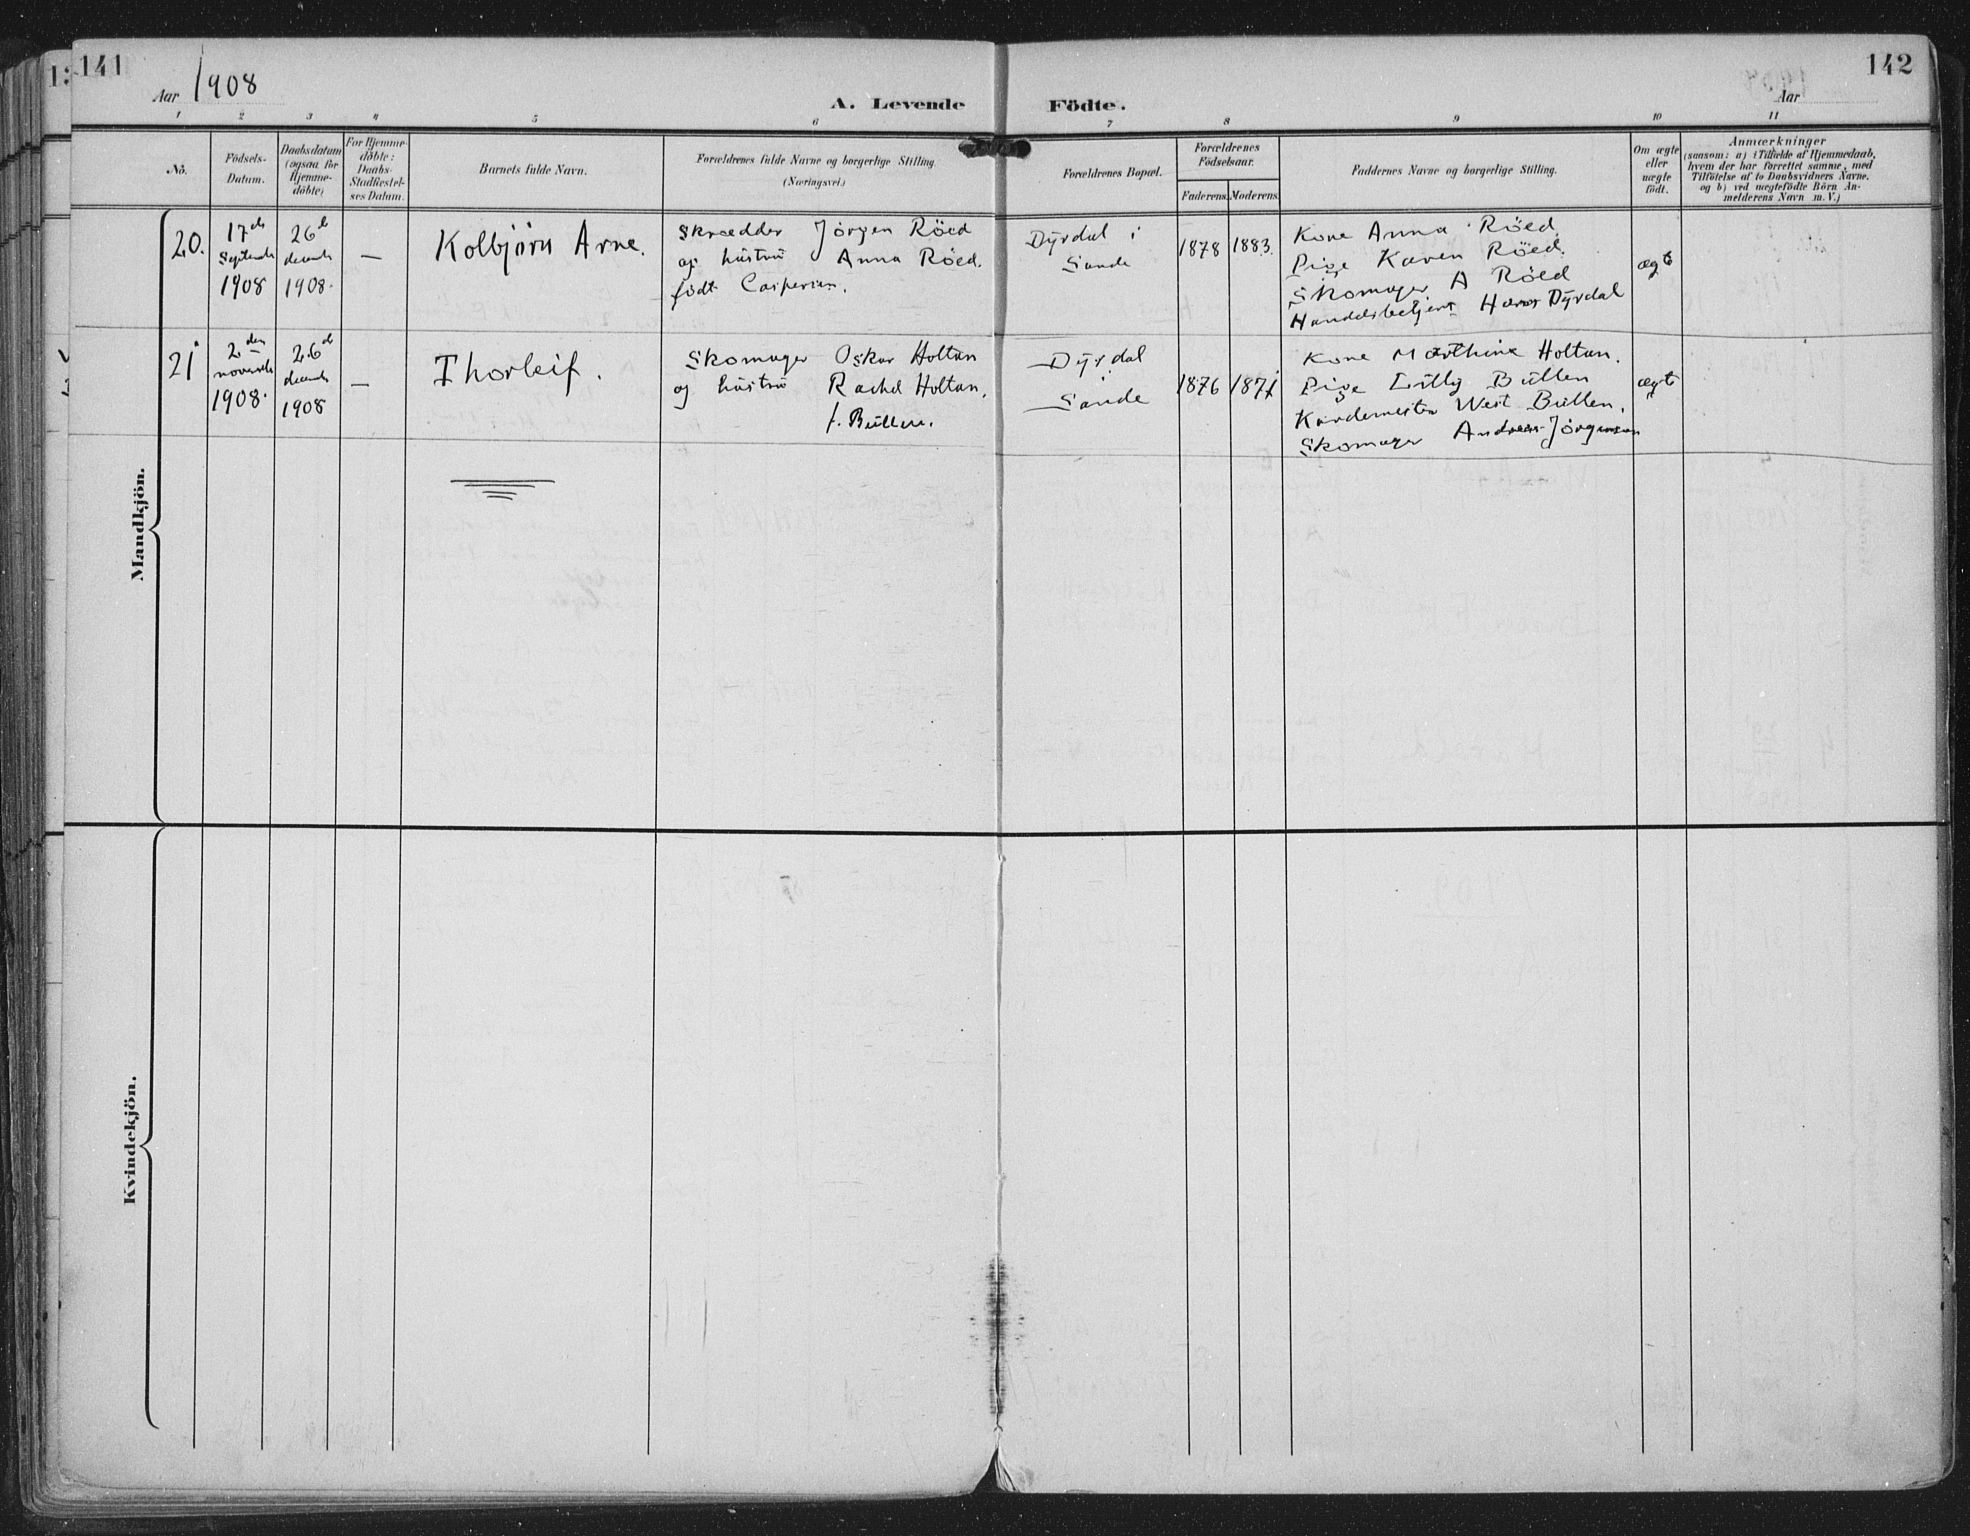 141
142
Aar 1908
A. Levende Födte.
Aar
1 2 3 4 5 6 7 8 9 10 11
No.
Födsels-
Datum.
Daabsdatum
(ogsaa for
Hjemme-
döbte)
For Hjemme-
döbte:
Daabs-
Stadfæstel-
ses Datum.
Barnets fulde Navn.
Forældrenes fulde Navne og borgerlige Stilling
(Næringsvei.)
Forældrenes Bopæl.
Forældrenes
Födselsaar.
Faderens. Moderens.
Faddernes Navne og borgerlige Stilling.
Om ægte
eller
uægte
födt.
Anmærkninger
(saasom: a) i Tilfælde af Hjemmedaab,
hvem der har forrettet samme, med
Tilföielse af to Daabsvidners Navne,
og b) ved uægtefödte Börn An-
melderens Navn m. V.)
Mandkjön.
20.
17de
Septemb
1908
26de
decemb
1908.
—
Kolbjörn Arne.
Skrædder Jörgen Röed
og hustru Anna Röed.
född Caspersen.
Dyrdal i
Sande
1878
1883.
Kone Anna Röed.
Pige Karen Röed.
Skomager A Röed
Handelsbetjent Hans Dyrdal
ægte
21
2den
novemb
1908.
26de
decemb
1908
—
Thorleif.
Skomager Oskar Holtan
og hustru Rachel Holtan,
f. Bullen.
Dyrdal
Sande
1876
1871
Kone Marthine Holtan.
Pige Lilly Bullen
Kardemester West Bullen.
Skomager Andreas Jörgensen
ægte
Kvindekjön.